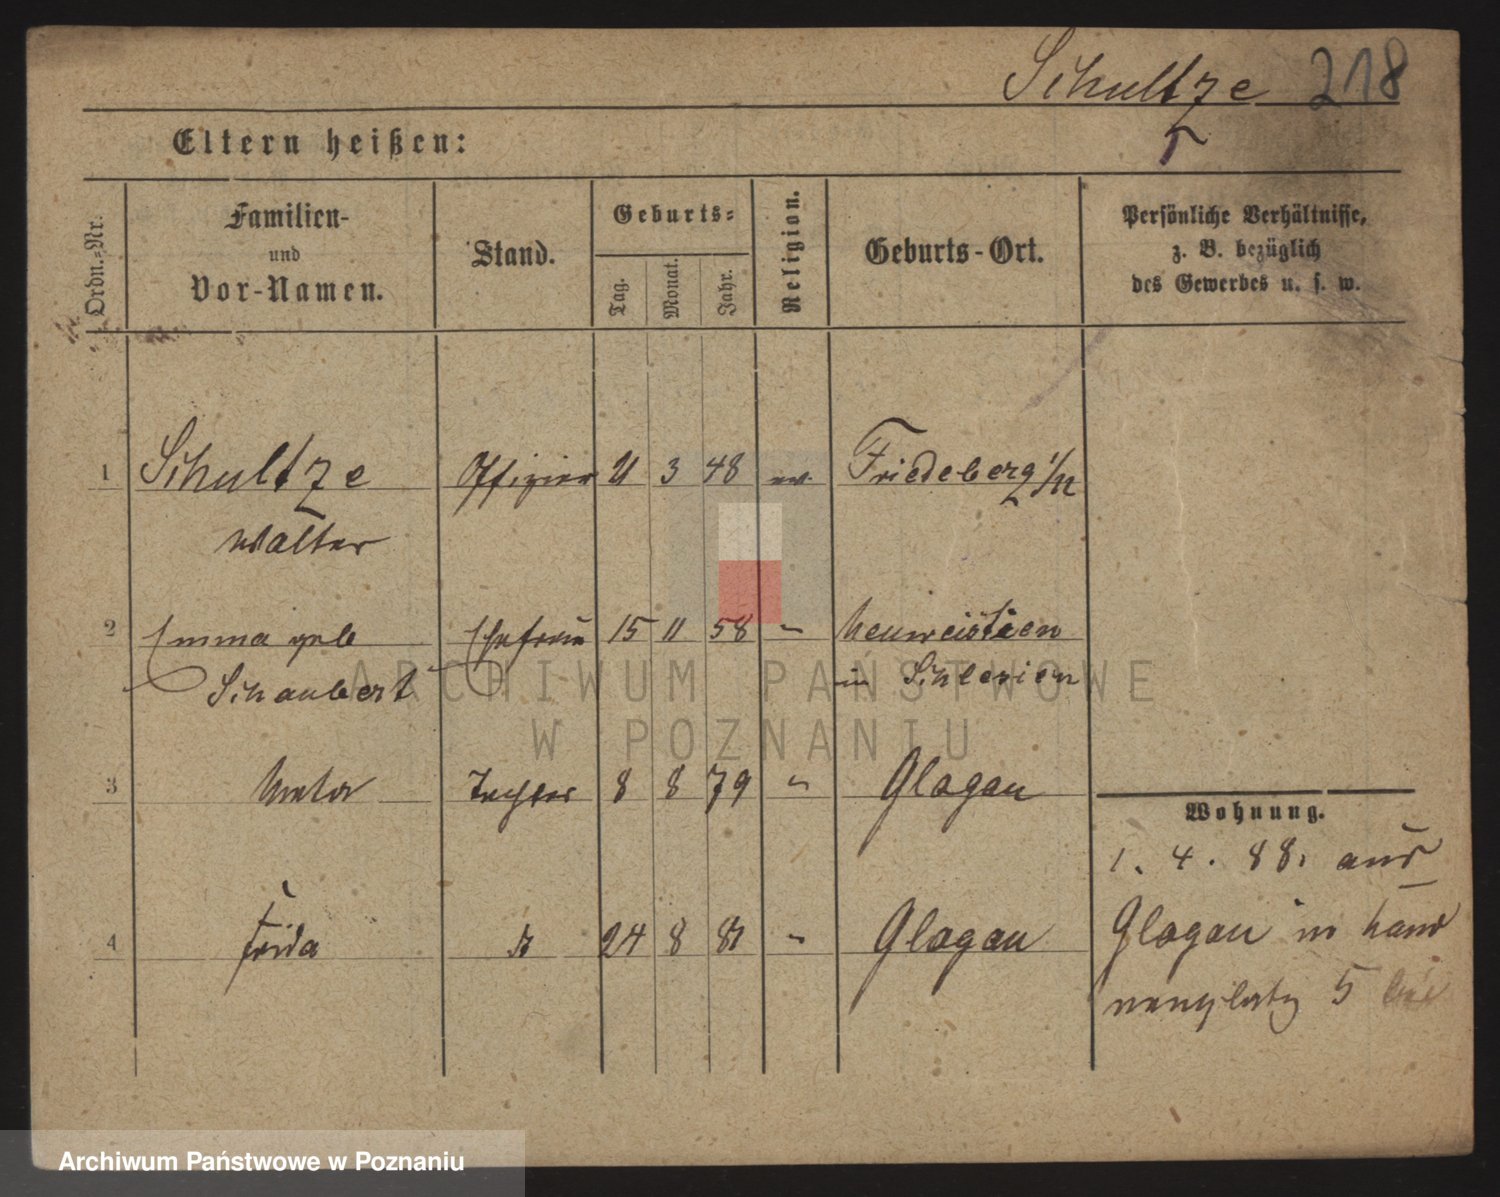 Schultze 218
Eltern heißen:
Ordn.-Nr.
Familien-
und
Vor-Namen.
Stand.
Geburts-
Tag.
Monat.
Jahr.
Religion.
Geburts-Ort.
Persönliche Verhältnisse,
z. B. bezüglich
des Gewerbes u. s. w.
1 Schultze Offizier 21 3 48 ev. Friedeberg i/N
Walter
2 Emma geb Ehefrau 15 11 58 "
Schaubert in Schlesien
3 Meta Tochter 8 8 79 " Glogau
Wohnung.
1. 4. 88. aus
4 Frida 24 8 81 " Glogau
Glogau in
5
ARCHIWUM PAŃSTWOWE
W POZNANIU
Archiwum Państwowe w Poznaniu